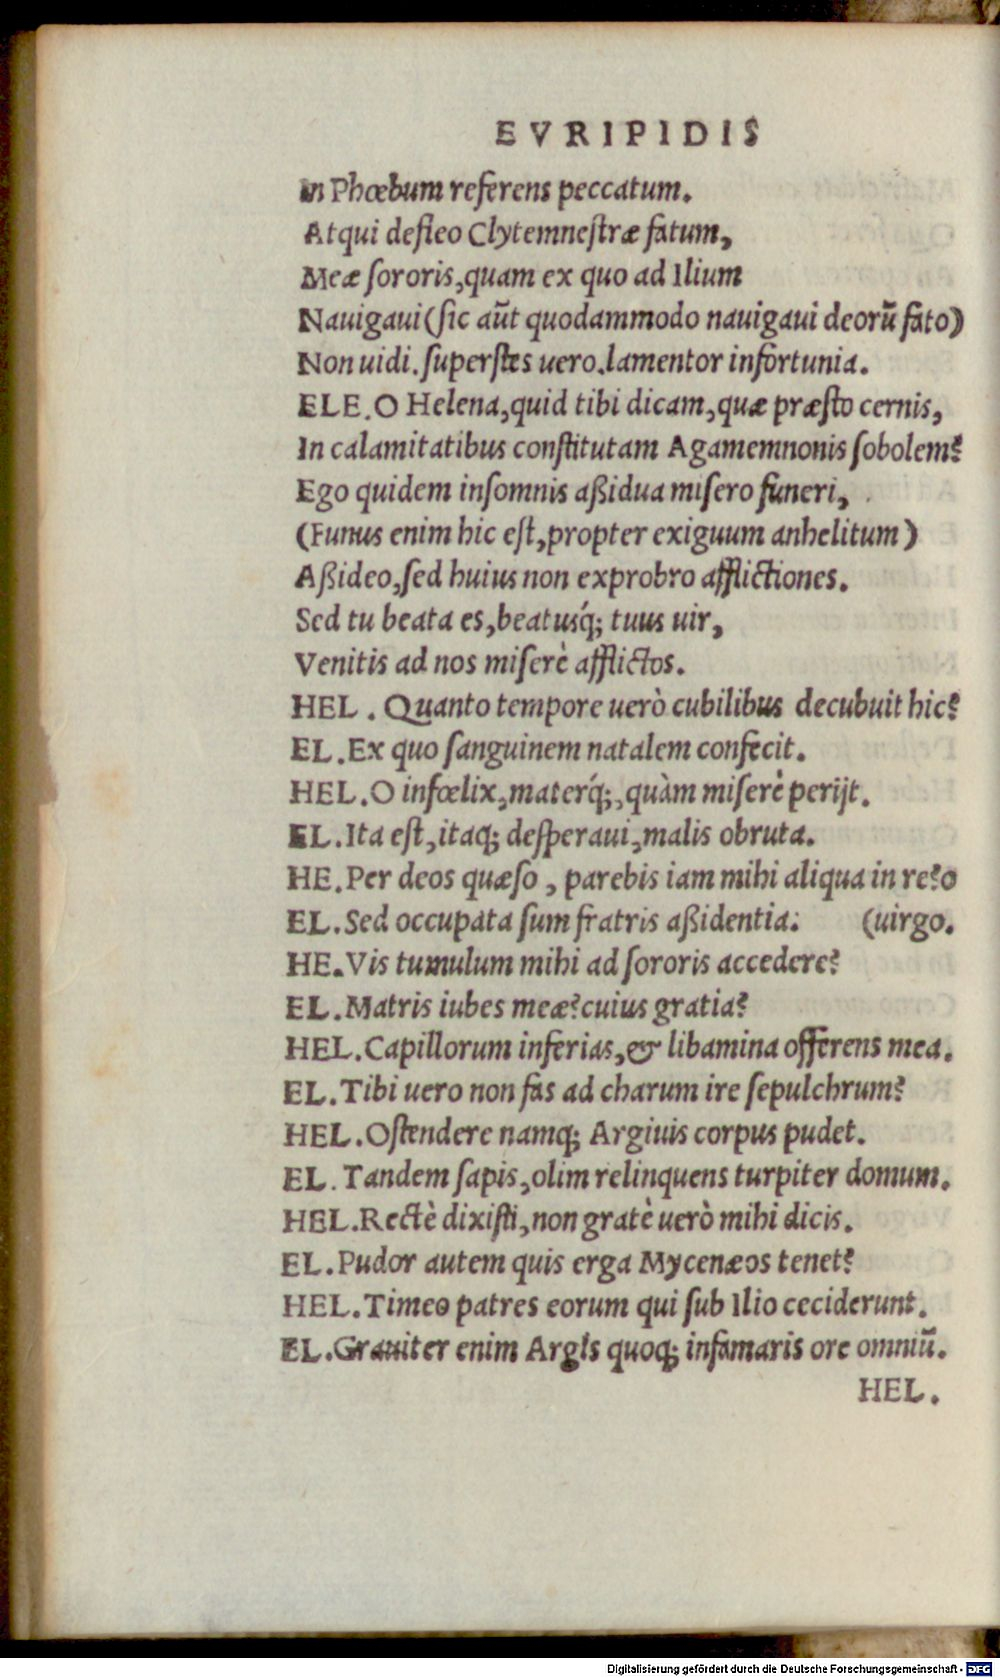 EVRIPIDIS
In Phœbum referens peccatum.
Atqui defleo Clytemnestræ fatum,
Meæ sororis, quam ex quo ad Ilium
Nauigaui (sic aūt quodammodo nauigaui deorū fato)
Non uidi. superstes uero. lamentor infortunia.
ELE. O Helena, quid tibi dicam, quæ præsto cernis,
In calamitatibus constitutam Agamemnonis sobolem?
Ego quidem insomnis aßidua misero funeri,
(Funus enim hic est, propter exiguum anhelitum)
Aßideo, sed huius non exprobro afflictiones.
Sed tu beata es, beatusq́; tuus uir,
Venitis ad nos miserè afflictos.
HEL. Quanto tempore uerò cubilibus decubuit hic?
EL. Ex quo sanguinem natalem confecit.
HEL. O infœlix, materq́;, quàm miserè perijt.
EL. Ita est, itaq; desperaui, malis obruta.
HE. Per deos quæso, parebis iam mihi aliqua in re? o
EL. Sed occupata sum fratris aßidentia: (uirgo.
HE. Vis tumulum mihi ad sororis accedere?
EL. Matris iubes meæ? cuius gratia?
HEL. Capillorum inferias, & libamina offerens mea.
EL. Tibi uero non fas ad charum ire sepulchrum?
HEL. Ostendere namq; Argiuis corpus pudet.
EL. Tandem sapis, olim relinquens turpiter domum.
HEL. Rectè dixisti, non gratè uerò mihi dicis.
EL. Pudor autem quis erga Mycenæos tenet?
HEL. Timeo patres eorum qui sub Ilio ceciderunt.
EL. Grauiter enim Argis quoq; infamaris ore omniū.
HEL.
Digitalisierung gefördert durch die Deutsche Forschungsgemeinschaft - DFG